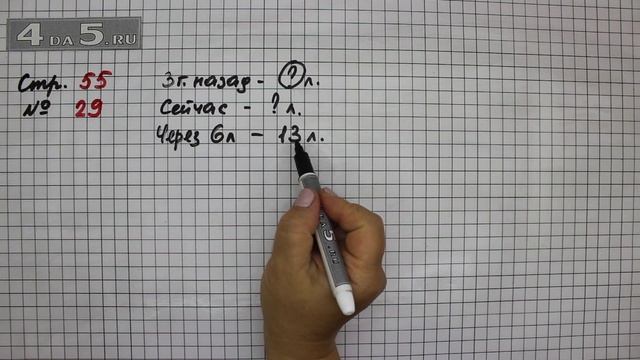 4 DA 5.RU
Стр. 55
№ 29
3 г. назад - ? л.
Сейчас - ? л.
Через 6 л - 13 л.